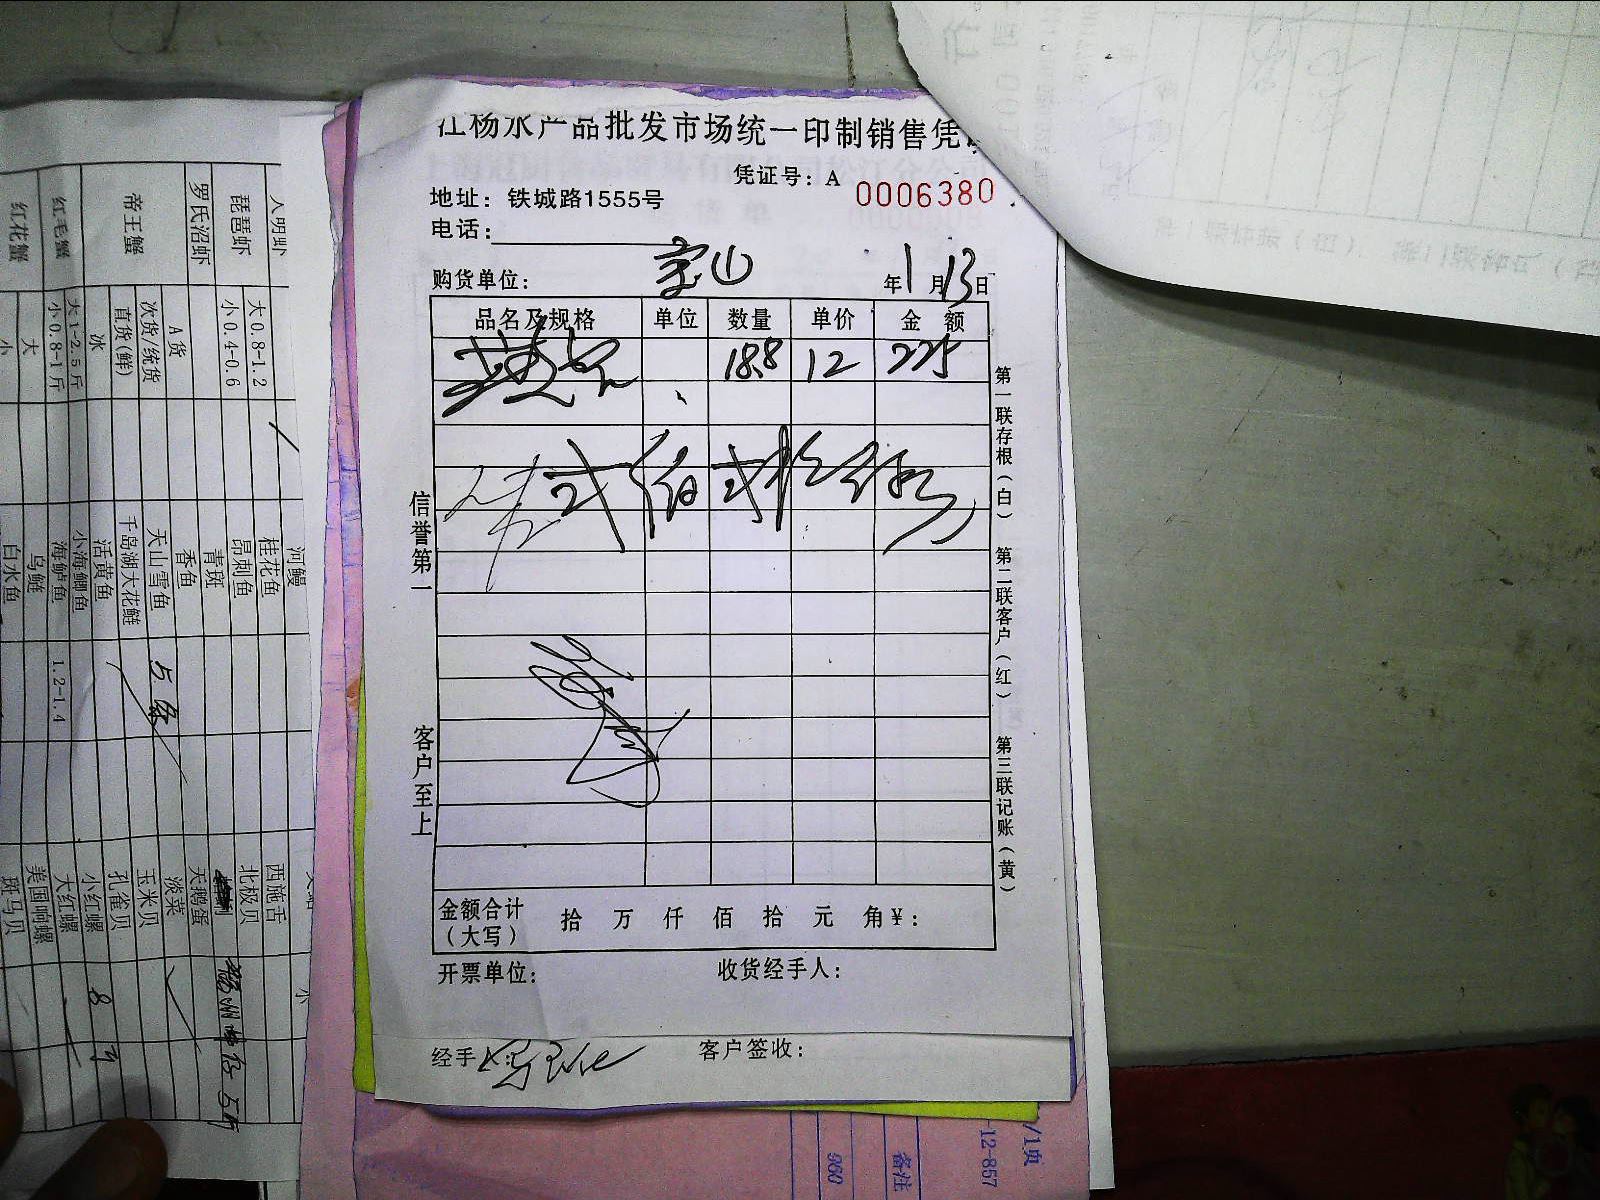 江杨水产品批发市场统一印制销售凭
凭证号：A 0006380
地址：铁城路1555号
电话：
购货单位： 宝山 年1月13日
品名及规格 单位 数量 单价 金额
18.8 12 225
弍佰弍拾伍
信誉第一
客户至上
第一联存根（白） 第二联客户（红） 第三联记账（黄）
金额合计（大写） 拾 万 仟 佰 拾 元 角 ¥：
开票单位： 收货经手人：
经手 客户签收：
琵琶虾
罗氏沼虾
帝王蟹
红毛蟹
红花蟹
大0.8-1.2
小0.4-0.6
A货
次货/统货
直货(鲜)
冰
大1-2.5斤
小0.8-1斤
大
小
河鳗
桂花鱼
昂刺鱼
青斑
香鱼
天山雪鱼
千岛湖大花鲢
活黄鱼
小海鲫鱼
海鲈鱼 1.2-1.4
乌鲢
白水鱼
西施舌
北极贝
天鹅蛋
淡菜
玉米贝
孔雀贝
小红螺 8
大红螺
美国响螺
斑马贝
小
/1页
-12-857
备注
960